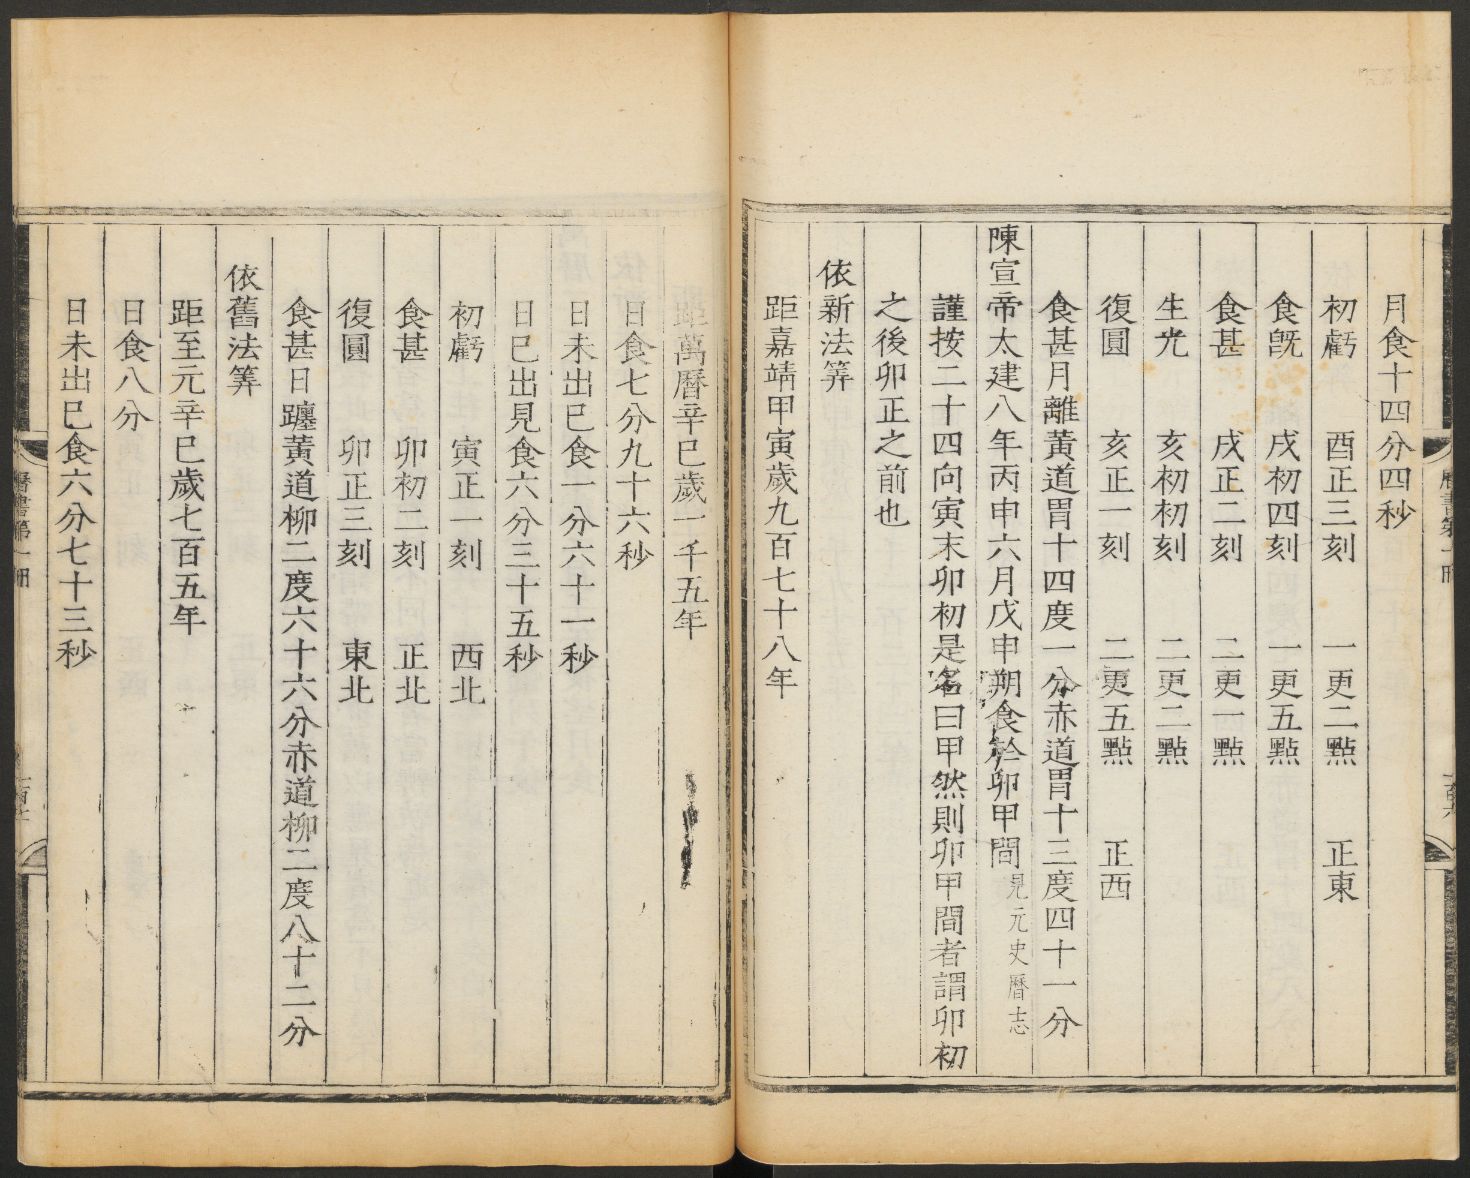 月食十四分四秒
初虧　酉正三刻　一更二點　正東
食既　戌初四刻　一更五點
食甚　戌正二刻　二更一點
生光　亥初初刻　二更二點
復圓　亥正一刻　二更五點　正西
食甚月離黃道胃十四度一分赤道胃十三度四十一分
陳宣帝太建八年丙申六月戊申朔食於卯甲間見元史曆志
謹按二十四向寅末卯初是名曰甲然則卯甲間者謂卯初
之後卯正之前也
依新法筭
距嘉靖甲寅歲九百七十八年
曆書第一冊
一百六
距萬曆辛巳歲一千五年
日食七分九十六秒
日未出已食一分六十一秒
日已出見食六分三十五秒
初虧　寅正一刻　西北
食甚　卯初二刻　正北
復圓　卯正三刻　東北
食甚日躔黃道柳二度六十六分赤道柳二度八十二分
依舊法筭
距至元辛巳歲七百五年
日食八分
日未出已食六分七十三秒
曆書第一冊
一百七